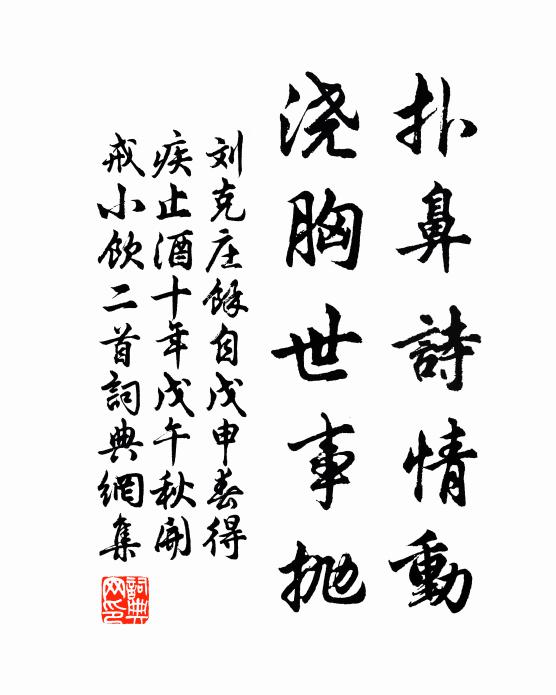 扑鼻詩情動
浇胸世事抛
刘克庄餘自戊申春得
疾止酒十年戊午秋開
戒小飲二首詞典網集
詞典
网印